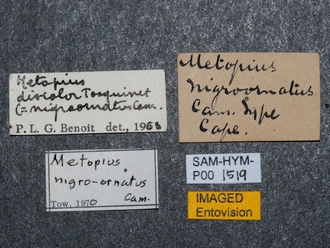 Metopius
discolor Tosquinet
(= nigroornatus Cam.
P. L. G. Benoit det., 1955
Metopius
nigro-ornatus
Cam.
Tow. 1970
Metopius
nigroornatus
Cam. Type
Cape.
SAM-HYM-
P00 1519
IMAGED
Entovision